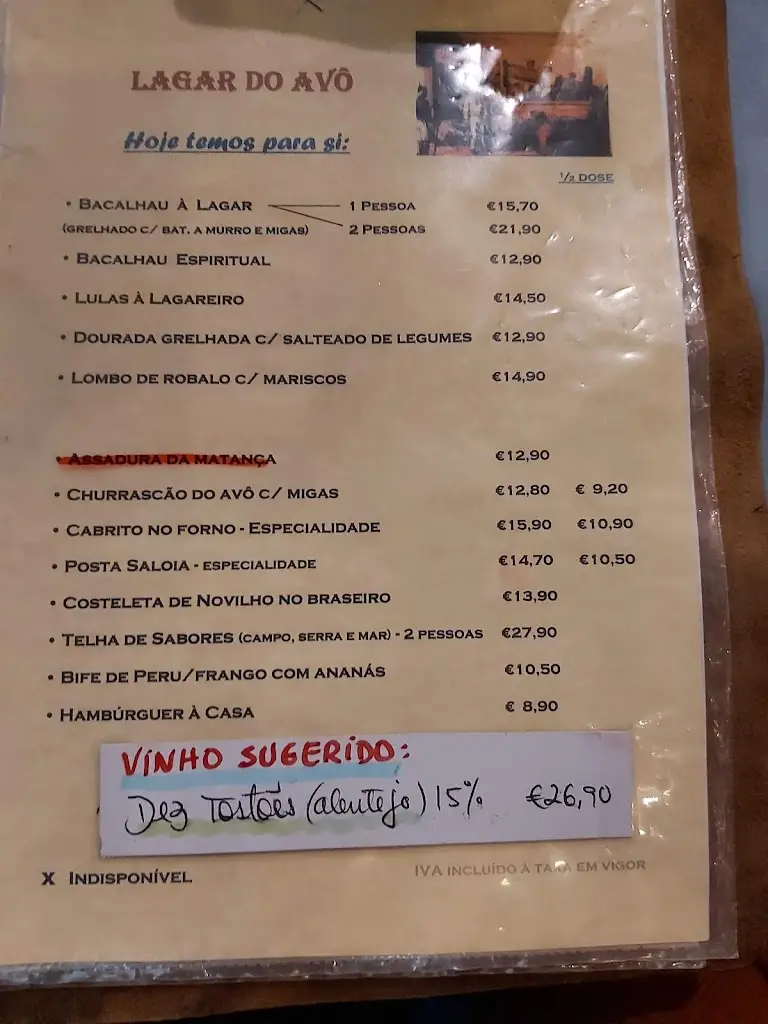 LAGAR DO AVÔ
Hoje temos para si:
½ DOSE
• BACALHAU À LAGAR 1 PESSOA €15,70
(GRELHADO C/ BAT. A MURRO E MIGAS) 2 PESSOAS €21,90
• BACALHAU ESPIRITUAL €12,90
• LULAS À LAGAREIRO €14,50
• DOURADA GRELHADA C/ SALTEADO DE LEGUMES €12,90
• LOMBO DE ROBALO C/ MARISCOS €14,90
• ASSADURA DA MATANÇA €12,90
• CHURRASCÃO DO AVÔ C/ MIGAS €12,80 € 9,20
• CABRITO NO FORNO - ESPECIALIDADE €15,90 €10,90
• POSTA SALOIA - ESPECIALIDADE €14,70 €10,50
• COSTELETA DE NOVILHO NO BRASEIRO €13,90
• TELHA DE SABORES (CAMPO, SERRA E MAR) - 2 PESSOAS €27,90
• BIFE DE PERU/FRANGO COM ANANÁS €10,50
• HAMBÚRGUER À CASA € 8,90
VINHO SUGERIDO:
Dez Tostões (alentejo) 15% €26,90
X INDISPONÍVEL
IVA INCLUÍDO À TAXA EM VIGOR